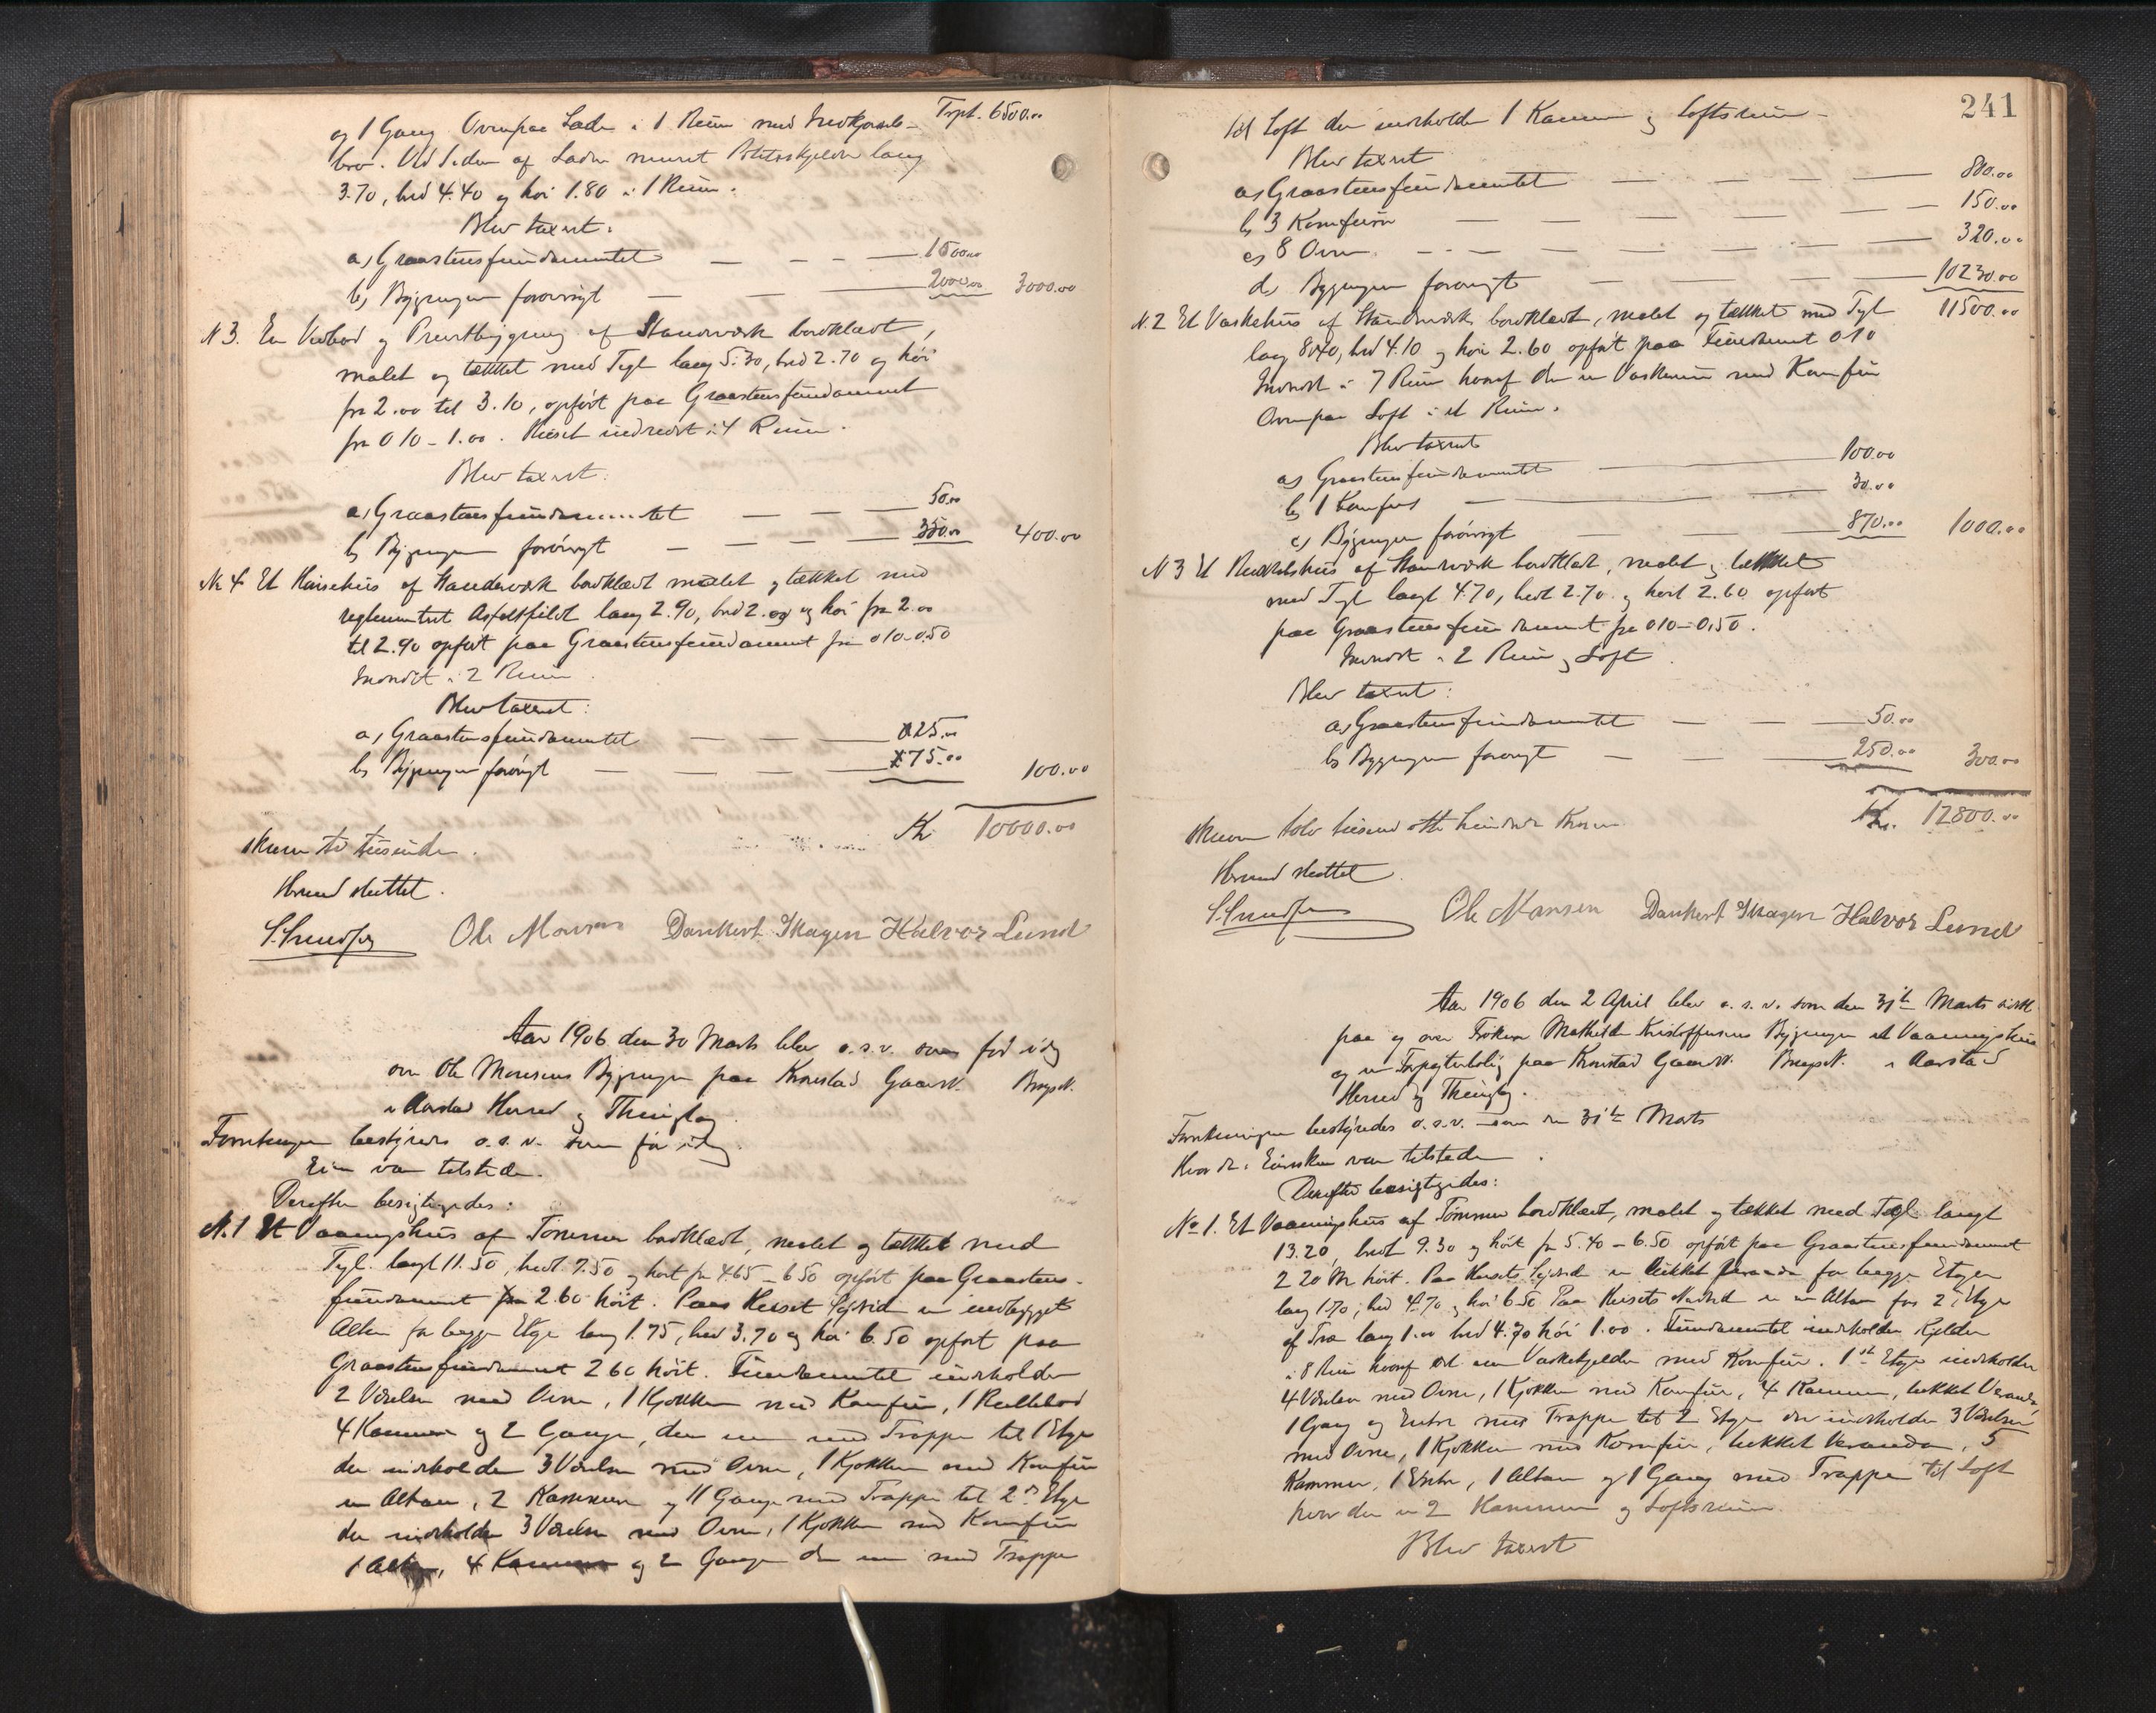 og 1 Gang Ovenpaa Lade i 1 Rum med Indkjørsels- Trpt. 6500.00
bro. Ved Siden af Laden muret Poteteskjelder lang
3.70, bred 4.40 og høi 1.80 i 1 Rum.
Blev taxert:
a, Graastensfundamentet — — — 1000.00
b, Bygningen forøvrigt — — — 2000.00 3000.00
N 3. En Vedbod og Bygning af Standværk bordklædt,
malet og tækket med Tegl lang 5.30, bred 2.70 og høi
fra 2.00 til 3.10, opført paa Graastensfundament
fra 0 10 - 1.00. Huset indredet i 4 Rum.
Blev taxert:
a, Graastensfundamentet — — — 50.00
b, Bygningen forøvrigt — — — 350.00 400.00
N 4 Et Hønsehus af Standværk bordklædt malet og tækket med
Asfaltfildt lang 2.90, bred 2.00 og høi fra 2.00
til 2.90 opført paa Graastensfundament fra 0 10-0.50
Indredet i 2 Rum
Blev taxeret:
a, Graastensfundamentet — — — 25.00
b, Bygningen forøvrigt — — — 75.00 100.00
Kr 10000.00
Kroner ti tusinde.
Hermed sluttet.
Ole Monsen Dankert Skagen Halvor Lund
Aar 1906 den 30 Marts blev o.s.v. som før idag
over Ole Monsens Bygninger paa Kronstad Gaard N. Brugs N.
i Aarstad Herred og Thinglag.
Forretningen bestyredes o.s.v. som før idag.
Eier var tilstede.
Derefter besigtigedes:
N. 1 Et Vaaningshus af Tømmer bordklædt, malet og tækket med
Tegl. langt 11.50, bredt 7.50 og høit fra 4.65 - 6 50 opført paa Graastens-
fundament 2.60 høit. Paa Huset Sydside er indbygget
Altan for begge Etager lang 1.75, bred 3.70 og høi 6.50 opført paa
Graastensfundament 2 60 høit. Fundamentet indeholder
2 Værelser med Ovne, 1 Kjøkken med Komfur, 1 Rullebod
4 Kammer og 2 Gange, den ene med Trappe til 1 Etage
der indeholder 3 Værelser med Ovne, 1 Kjøkken med Komfur
en Altan, 2 Kammer og 1 Gange med Trappe til 2den Etage
der indeholder 3 Værelser med Ovne, 1 Kjøkken med Komfur
1 Altan, 4 Kammer og 2 Gange den ene med Trappe
241
til Loft der indeholder 1 Kammer og Loftsrum -
Blev taxert
a, Graastensfundamentet — — — 800.00
b, 3 Komfurer — — — 150.00
c, 8 Ovne — — — 320.00
d, Bygningen forøvrigt — — — 10230.00
11500.00
N. 2 Et Vaskehus af Standværk bordklædt, malet og tækket med Tegl
lang 8.40, bred 4.10 og høi 2.60 opført paa Fundament 0 10
Indredet i 7 Rum hvoraf der er Vaskerum med Komfur
Ovenpaa Loft i et Rum.
Blev taxeret
a, Graastensfundamentet — 100.00
b, 1 Komfur — — 30.00
c, Bygningen forøvrigt — — 870.00 1000.00
N 3 Et Redskabshus af Standværk bordklædt, malet og tækket
med Tegl langt 4.70, bredt 2.70 og høit 2.60 opført
paa Graastensfundament fra 0 10 - 0.50.
Indredet i 2 Rum og Loft
Blev taxert:
a, Graastensfundamentet — — — 50.00
b, Bygningen forøvrigt — — — 250.00 300.00
Kr. 12800.00
Kroner tolv tusend otte hundrede Kroner.
Hermed sluttet.
Ole Monsen Dankert Skagen Halvor Lund
Aar 1906 den 2 April blev o.s.v. som den 31te Marts sidst
paa og over Frøken Mathilde Kristoffersens Bygninger et Vaaningshus
og en Forpagterbolig paa Kronstad Gaard N. Brugs N. i Aarstad
Herred og Thinglag.
Forretningen bestyredes o.s.v. som den 31te Marts
Hvorda Eiersken var tilstede.
Derefter besigtigedes:
No 1. Et Vaaningshus af Tømmer bordklædt, malet og tækket med Tegl langt
13.20, bredt 9.30 og høit fra 5.40 - 6.50 opført paa Graastensfundament
2 20 M høit. Paa Husets Sydside er lukket Veranda for begge Etager
lang 1.70, bred 4.70 og høi 6.50 Paa Husets Nordside er en Altan for 2 Etage
af Træ lang 1.00 bred 4.70 høi 1.00. Fundamentet indeholder Kjelder
i 8 Rum hvoraf det ene Vaskekjelder med Komfur. 1ste Etage indeholder
4 Værelser med Ovne, 1 Kjøkken med Komfur, 4 Kammer, lukket Veranda,
1 Gang og Entre med Trappe til 2 Etage der indeholder 3 Værelser
med Ovne, 1 Kjøkken med Komfur, lukket Veranda, 5
Kammer, 1 Entre, 1 Altan og 1 Gang med Trappe til Loft
hvor der er 2 Kammer og Loftsrum.
Blev taxert